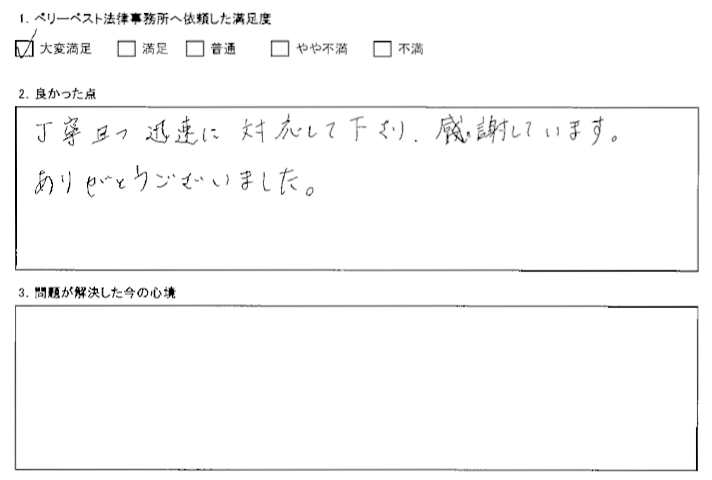 1. ベリーベスト法律事務所へ依頼した満足度
☑ 大変満足 □ 満足 □ 普通 □ やや不満 □ 不満
2. 良かった点
丁寧且つ 迅速に 対応して下さり、感謝しています。
ありがとうございました。
3. 問題が解決した今の心境